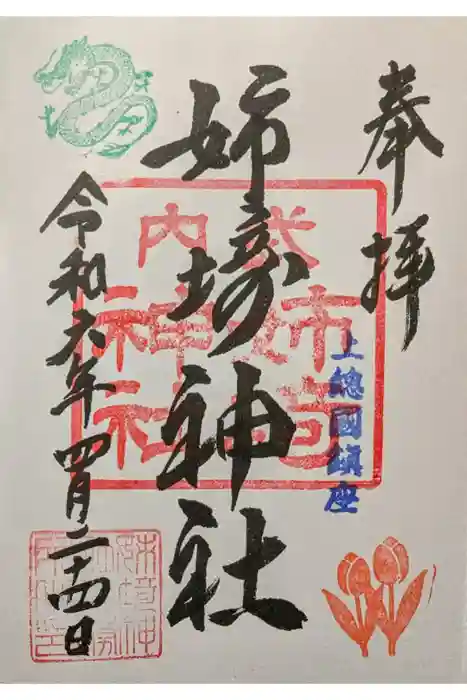 奉拝
上總國鎮座
姉埼神社
令和六年四月二十四日
式内
姉埼
神社